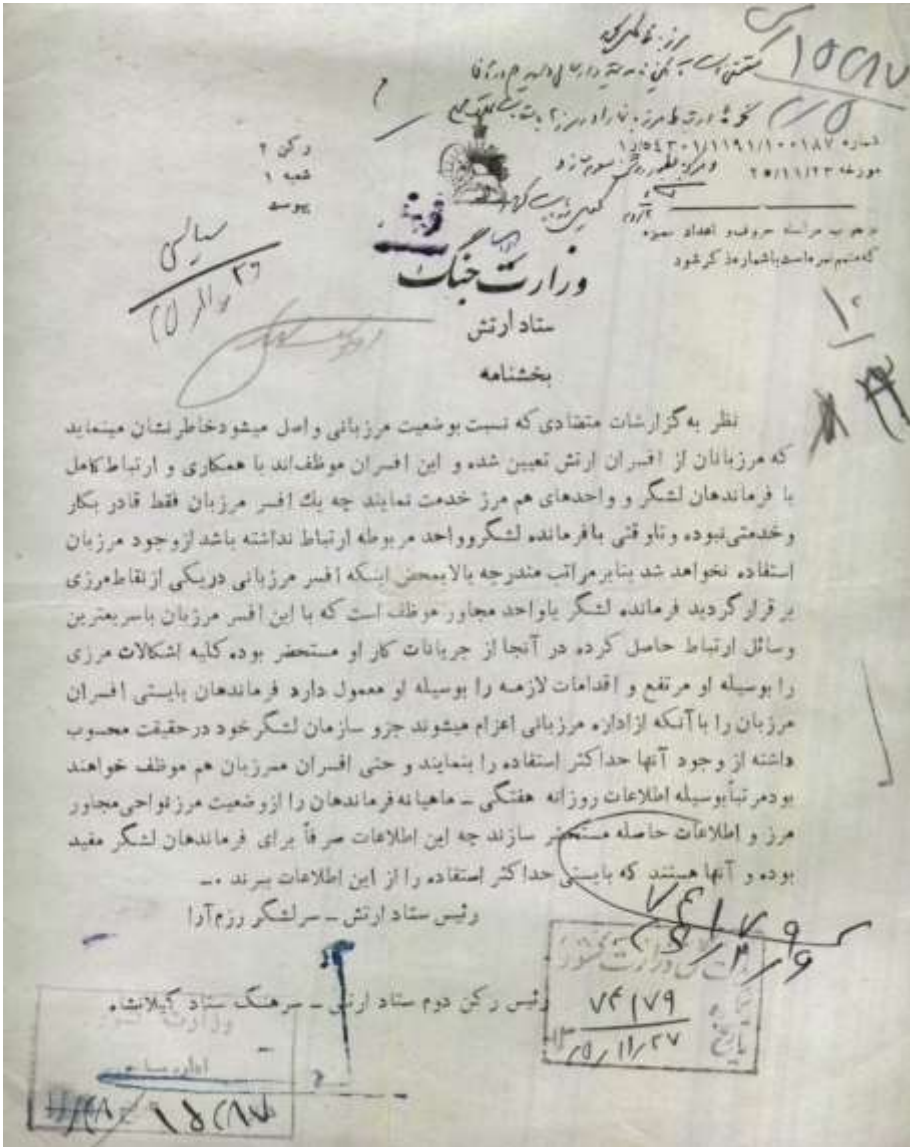 شماره ۱۵۴۳۰۱/۱۱۹۱/۱۰۰۱۸۷
مورخه ۲۵/۱۱/۲۳
رکن ۲
شعبه ۱
پیوست
که متمم نمره است باشماره ذکر شود
سیاسی
وزارت جنگ
ستاد ارتش
بخشنامه
نظر به گزارشات متضادی که نسبت بوضعیت مرزبانی واصل میشود خاطرنشان مینماید
که مرزبانان از افسران ارتش تعیین شده و این افسران موظف‌اند با همکاری و ارتباط کامل
با فرماندهان لشگر و واحدهای هم مرز خدمت نمایند چه یك افسر مرزبان فقط قادر بکار
و خدمتی نبوده و تاوقتی بافرمانده لشگر وواحد مربوطه ارتباط نداشته باشد ازوجود مرزبان
استفاده نخواهد شد بنابر مراتب مندرجه بالا بمحض اینکه افسر مرزبانی دریکی از نقاط مرزی
بر قرار گردید فرمانده لشگر یاواحد مجاور موظف است که با این افسر مرزبان باسریعترین
وسائل ارتباط حاصل کرده در آنجا از جریانات کار او مستحضر بوده کلیه اشکالات مرزی
را بوسیله او مرتفع و اقدامات لازمه را بوسیله او معمول دارد فرماندهان بایستی افسران
مرزبان را باآنکه ازاداره مرزبانی اعزام میشوند جزو سازمان لشگر خود درحقیقت محسوب
داشته از وجود آنها حداکثر استفاده را بنمایند و حتی افسران مرزبان هم موظف خواهند
بود مرتباً بوسیله اطلاعات روزانه هفتگی ـ ماهیانه فرماندهان را ازوضعیت مرز نواحی مجاور
مرز و اطلاعات حاصله مستحضر سازند چه این اطلاعات صرفاً برای فرماندهان لشگر مفید
بوده و آنها هستند که بایستی حداکثر استفاده را از این اطلاعات ببرند .ـ
رئیس ستاد ارتش ـ سرلشگر رزم‌آرا
۷۴۱۷۹
رئیس رکن دوم ستاد ارتش ـ سرهنگ ستاد گیلانشاه
وزارت کشور
۷۴۱۷۹
تاریخ ۲۵/۱۱/۲۷